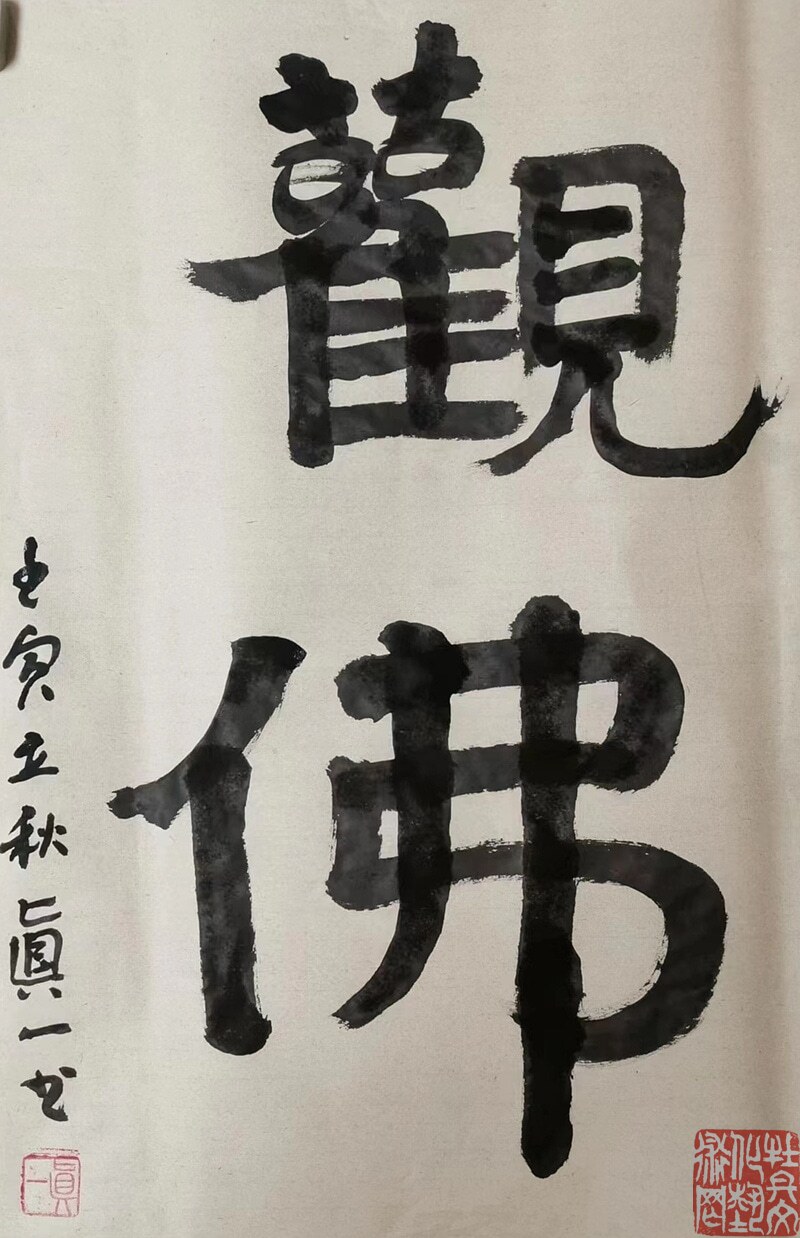 觀佛
壬寅立秋眞一书
眞一